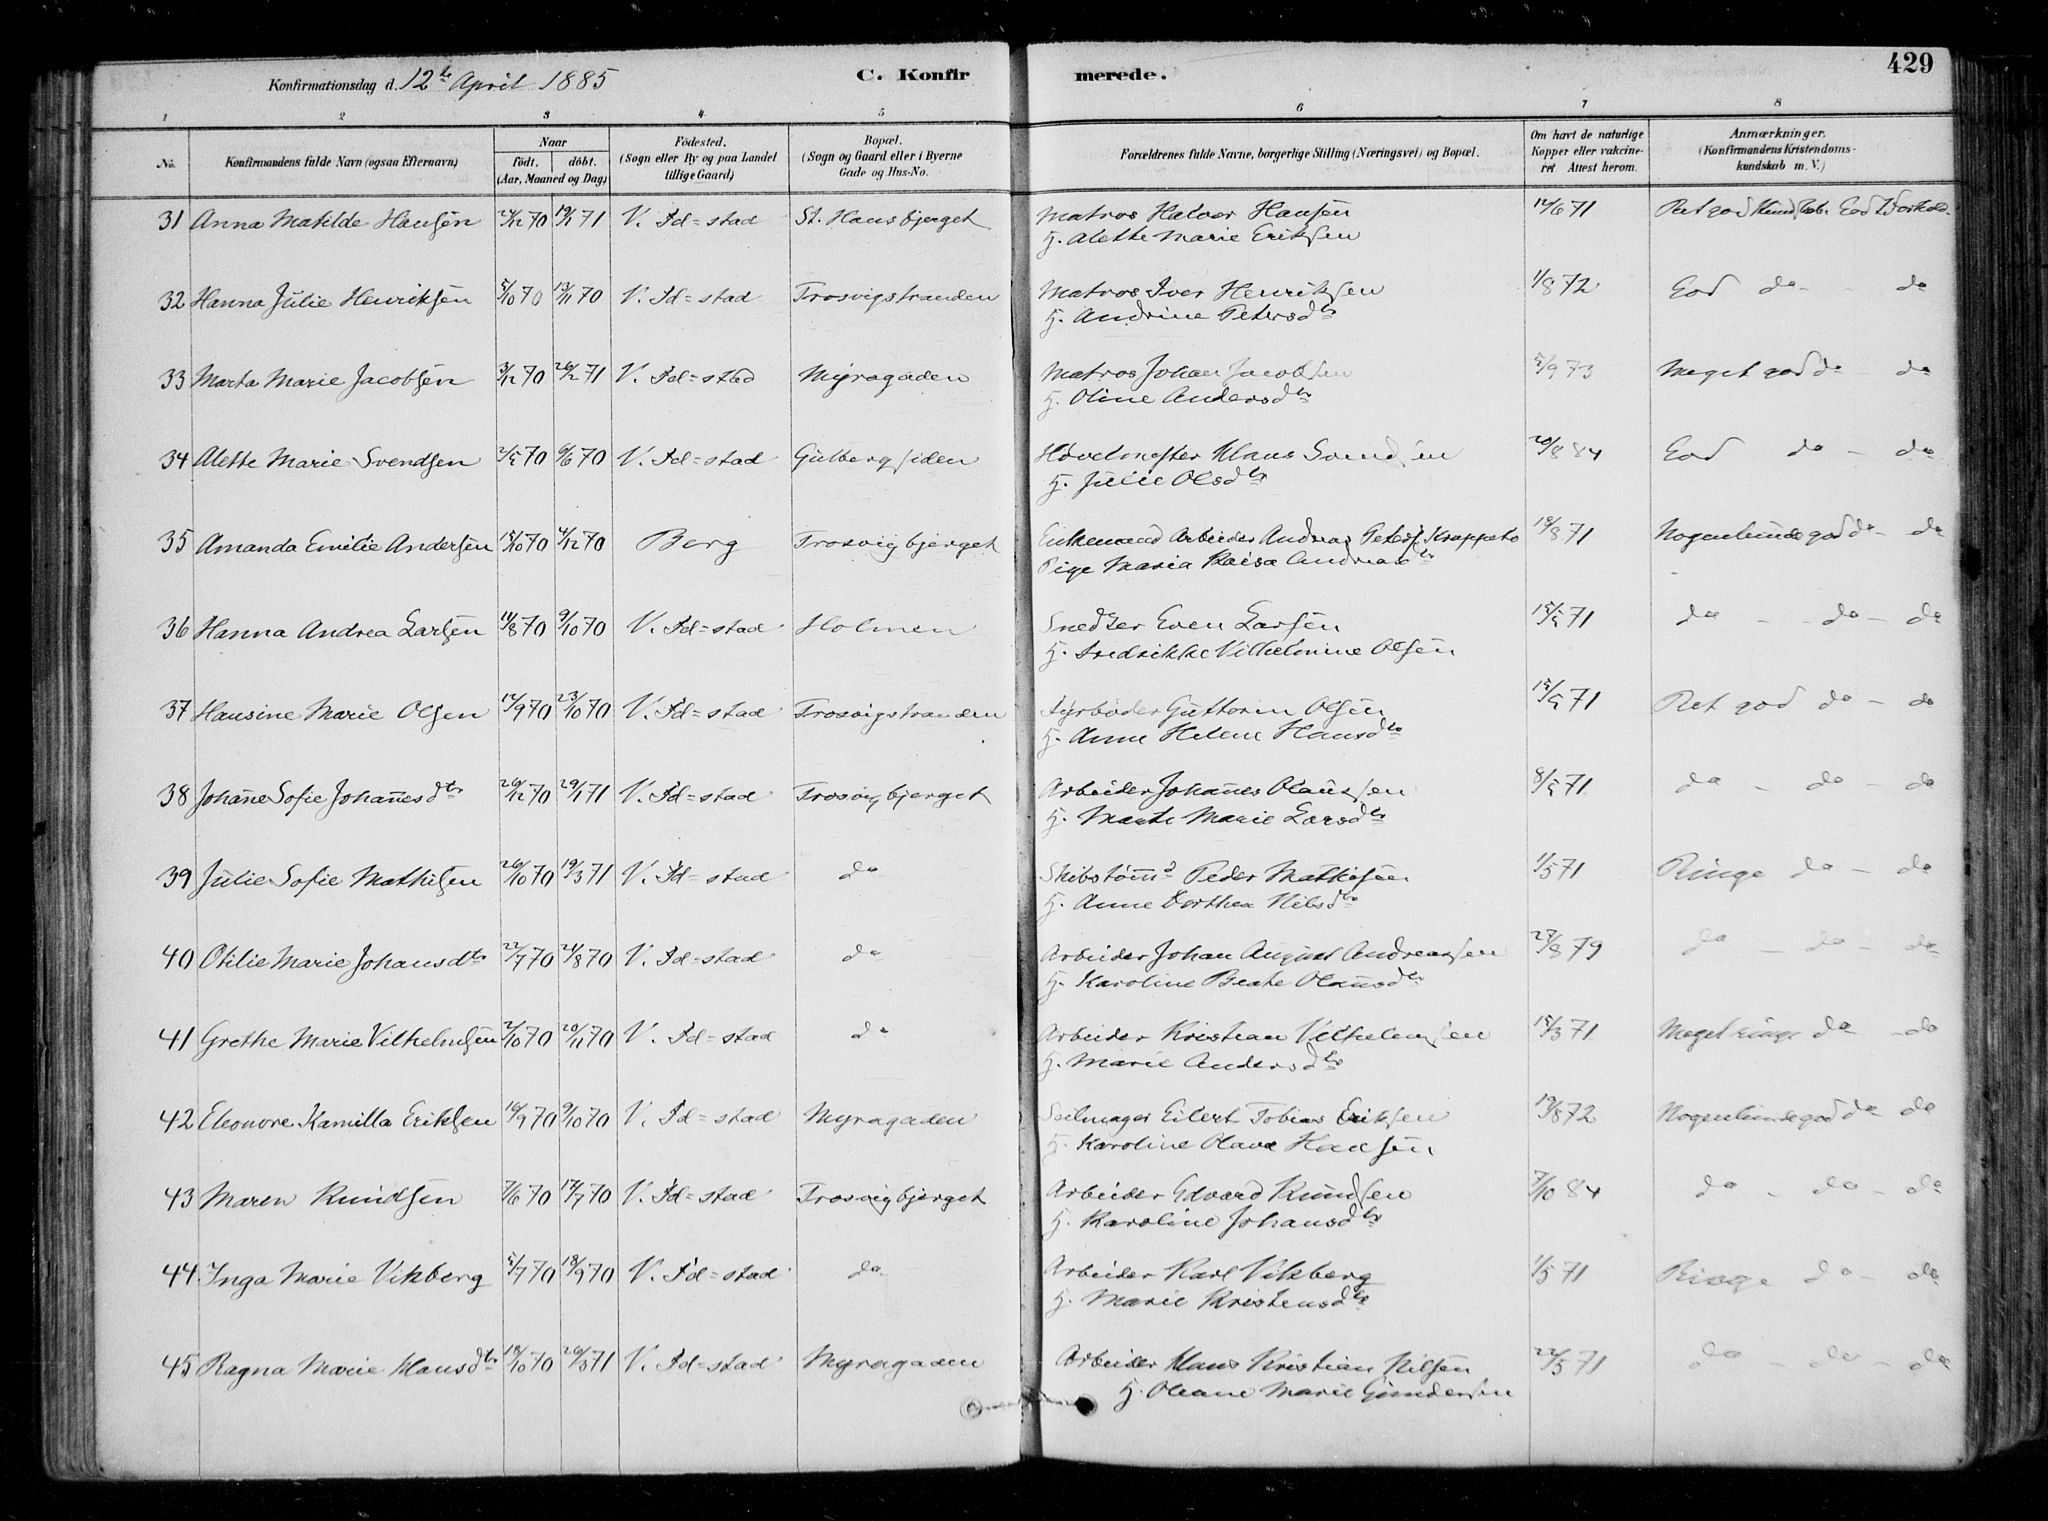 Konfirmationsdag d. 12te April 1885 C. Konfirmerede. 429
1 2 3 4 5 6 7 8
No. Konfirmandens fulde Navn (ogsaa Efternavn) Naar født. døbt. (Aar, Maaned og Dag) Fødested. (Sogn eller By og paa Landet tillige Gaard) Bopæl. (Sogn og Gaard eller i Byerne Gade og Hus-No. Forældrenes fulde Navne, borgerlige Stilling (Næringsvei) og Bopæl. Om havt de naturlige Kopper eller vakcineret Attest herom. Anmærkninger. (Konfirmandens Kristendomskundskab m. V.)
31 Anna Matilde Hansen 70 19/1 71 V. Fd=stad St. Hansbjerget Matros Halvor Hansen 12/6 71 Ret god Kundskab. God Forhold.
H. Alette Marie Eriksen
32 Hanna Julie Henriksen 5/10 70 13/11 70 V. Fd=stad Trosvigstranden Matros Iver Henriksen 1/8 72 God do - do
H. Andrine Petersdtr
33 Marta Marie Jacobsen 3/12 70 26/2 71 V. Fd=stad Myragaden Matros Johan Jacobsen 5/9 73 Meget god do - do
H. Oline Andersdtr
34 Alette Marie Svendsen 2/5 70 6/6 70 V. Fd=stad Gulbergsiden Høvelmester Klaus Svendsen 20/8 84 God do - do
H. Julie Olsdtr
35 Amanda Emilie Andersen 15/10 70 4/12 70 Berg Trosvigbjerget Enkemand Arbeider Andreas Peters. Krappeto 18/8 71 Nogenlunde god do - do
Pige Maria Kaisa Andreasdtr
36 Hanna Andrea Larsen 11/8 70 9/10 70 V. Fd=stad Holmen Snedker Even Larsen 15/5 71 do - do - do
H. Fredrikke Vilhelmine Olsen
37 Hansine Marie Olsen 12/9 70 23/10 70 V. Fd=stad Trosvigstranden Fyrbøder Guttorm Olsen 15/5 71 Ret god do - do
H. Anne Helene Hansdtr
38 Johanne Sofie Johannesdtr 26/12 70 29/1 71 V. Fd=stad Trosvigbjerget Arbeider Johannes Olaussen 8/5 71 do - do - do
H. Marte Marie Larsdtr
39 Julie Sofie Mathisen 26/10 70 19/3 71 V. Fd=stad do Skibstømmd Peder Mathisen 1/5 71 Ringe do - do
H. Anne Dorthea Nilsdtr
40 Otilie Marie Johansdtr 22/7 70 21/8 70 V. Fd=stad do Arbeider Johan August Andreassen 27/8 79 do - do - do
H. Karoline Beate Olausdtr
41 Grethe Marie Vilhelmsen 2/10 70 20/11 70 V. Fd=stad do Arbeider Kristian Vilhelmsen 15/3 71 Meget ringe do - do
H. Marie Andersdtr
42 Eleonore Kamilla Eriksen 10/9 70 9/10 70 V. Fd=stad Myragaden Seilmager Eilert Tobias Eriksen 19/8 72 Nogenlunde god do - do
H. Karoline Olava Hansen
43 Maren Knudsen 7/6 70 17/7 70 V. Fd=stad Trosvigbjerget Arbeider Edvard Knudsen 7/10 84 do - do - do
H. Karoline Johansdtr
44 Inga Marie Vikberg 5/7 70 18/9 70 V. Fd=stad do Arbeider Karl Vikberg 1/5 71 Ringe do - do
H. Marie Kristensdtr
45 Ragna Marie Klausdtr 18/10 70 26/3 71 V. Fd=stad Myragaden Arbeider Klaus Kristian Nilsen 22/5 71 do - do - do
H. Oleane Marie Gundersen